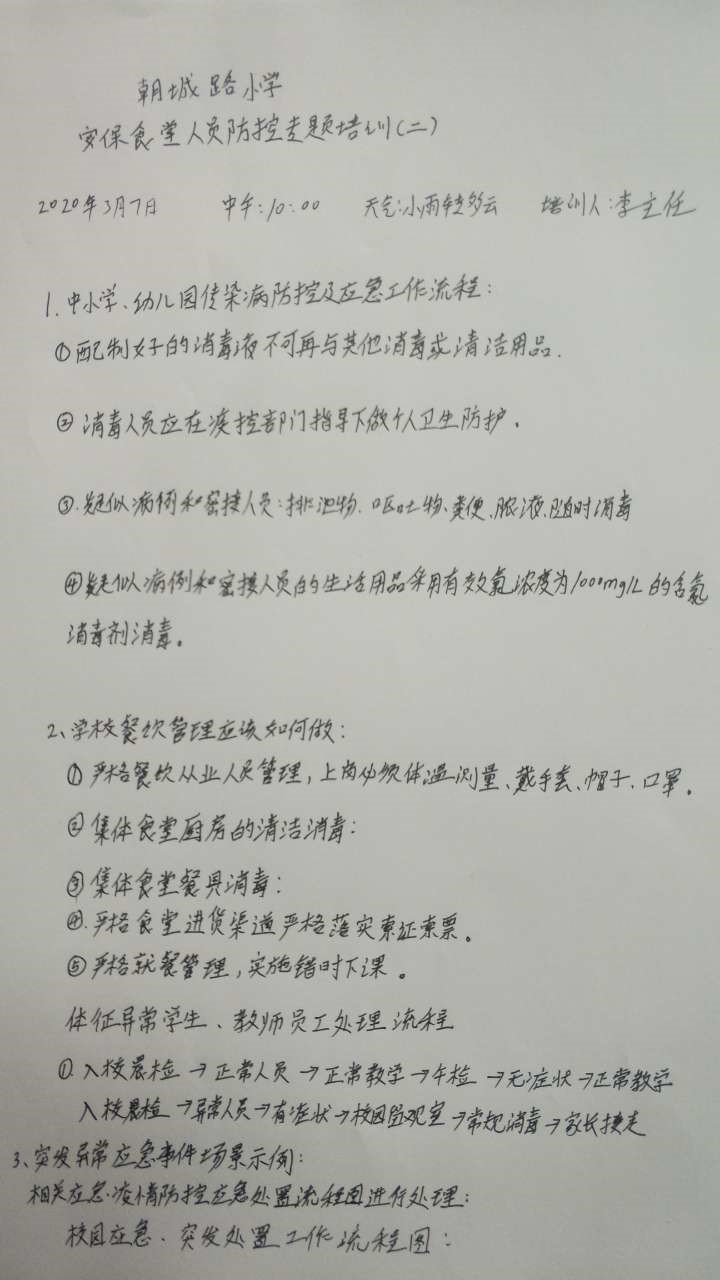 朝城路小学
安保食堂人员防控专题培训(二)
2020年3月7日 中午:10:00 天气:小雨转多云 培训人:李主任
1.中小学、幼儿园传染病防控及应急工作流程:
①配制好的消毒液不可再与其他消毒或清洁用品.
②消毒人员应在疾控部门指导下做个人卫生防护.
③.疑似病例和密接人员:排泄物.呕吐物、粪便、脓液、随时消毒
④疑似病例和密接人员的生活用品采用有效氯浓度为1000mg/L的含氯
消毒剂消毒。
2、学校餐饮管理应该如何做:
①严格餐饮从业人员管理,上岗必须体温测量、戴手套、帽子、口罩。
②集体食堂厨房的清洁消毒:
③集体食堂餐具消毒:
④.严格食堂进货渠道严格落实索证索票。
⑤严格就餐管理,实施错时下课。
体征异常学生、教师员工处理流程
①.入校晨检→正常人员→正常教学→午检→无症状→正常教学
入校晨检→异常人员→有症状→校园留观室→常规消毒→家长接走
3、突发异常应急事件场景示例:
相关应急.疫情防控应急处置流程图进行处理:
校园应急、突发处置工作流程图: